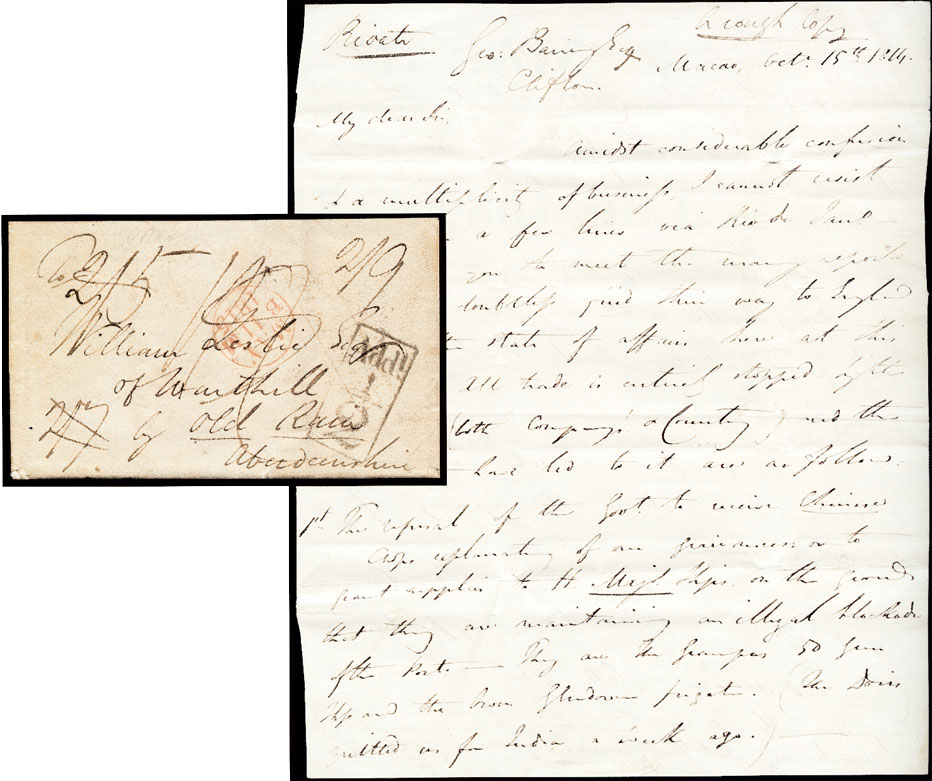 Private
A rough Copy
Geo: Baring Esq
Macao, Octr. 15th 1814.
Clifton.
My dear Sir,
Amidst considerable confusion
& a multiplicity of business I cannot resist
a few lines via Rio de Jano
you to meet the many reports
doubtless find their way to England
state of affairs here at this
All trade is entirely stopped
(both Company's & Country) and the
have led to it are as follow:
1st The refusal of the Govt. to receive Chinese
explanatory of our grievances or to
grant supplies to H. Maj. Ships, on the grounds
that they are maintaining an illegal blockade
of the Ports — They are the Grampus 50 Gun
Ship and the Owen Glendower frigate. (The Doris
quitted us for India a week ago.)
To 2/5
2/9
William Leslie Esqr
of Warthill
by Old Rain
Aberdeenshire
Addl.